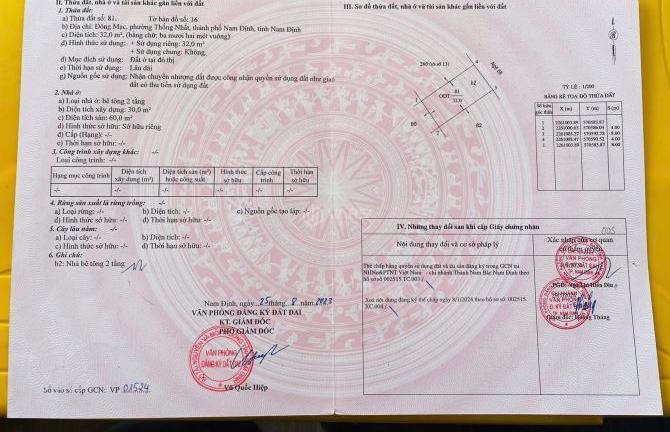 II. Thửa đất, nhà ở và tài sản khác gắn liền với đất
1. Thửa đất:
a) Thửa đất số: 81. Tờ bản đồ số: 16
b) Địa chỉ: Đông Mạc, phường Thống Nhất, thành phố Nam Định, tỉnh Nam Định
c) Diện tích: 32,0 m², (bằng chữ: ba mươi hai mét vuông)
d) Hình thức sử dụng: + Sử dụng riêng: 32,0 m²
+ Sử dụng chung: Không
đ) Mục đích sử dụng: Đất ở tại đô thị
e) Thời hạn sử dụng: Lâu dài
g) Nguồn gốc sử dụng: Nhận chuyển nhượng đất được công nhận quyền sử dụng đất như giao
đất có thu tiền sử dụng đất
2. Nhà ở:
a) Loại nhà ở: bê tông 2 tầng
b) Diện tích xây dựng: 30,0 m²
c) Diện tích sàn: 60,0 m²
d) Hình thức sở hữu: Sở hữu riêng
đ) Cấp (Hạng): -/-
e) Thời hạn sở hữu: -/-
3. Công trình xây dựng khác: -/-
Loại công trình: -/-
Hạng mục công trình
Diện tích xây dựng (m²)
Diện tích sàn (m²) hoặc công suất
Hình thức sở hữu
Cấp công trình
Thời hạn sở hữu
-/- -/- -/- -/- -/- -/-
4. Rừng sản xuất là rừng trồng: -/-
a) Loại rừng: -/- b) Diện tích: -/- c) Nguồn gốc tạo lập: -/-
d) Hình thức sở hữu: -/- đ) Thời hạn sở hữu: -/-
5. Cây lâu năm: -/-
a) Loại cây: -/- b) Diện tích: -/-
c) Hình thức sở hữu: -/- d) Thời hạn sở hữu: -/-
6. Ghi chú:
b2: Nhà bê tông 2 tầng
Nam Định, ngày 25 tháng 8 năm 2023
VĂN PHÒNG ĐĂNG KÝ ĐẤT ĐAI
KT. GIÁM ĐỐC
PHÓ GIÁM ĐỐC
VĂN PHÒNG
ĐĂNG KÝ ĐẤT ĐAI
Vũ Quốc Hiệp
Số vào sổ cấp GCN: VP 01524
III. Sơ đồ thửa đất, nhà ở và tài sản khác gắn liền với đất
260 (tờ số 13)
b2
81
ODT
32,0
80
82
TỶ LỆ: 1/200
BẢNG KÊ TOẠ ĐỘ THỬA ĐẤT
Số hiệu góc thửa X (m) Y (m) S (m)
IV. Những thay đổi sau khi cấp Giấy chứng nhận
Nội dung thay đổi và cơ sở pháp lý
Xác nhận của cơ quan
có thẩm quyền
Thế chấp bằng quyền sử dụng đất và tài sản đăng ký trong GCN tại
NHNo&PTNT Việt Nam - chi nhánh Thành Nam Bắc Nam Định theo
hồ sơ số 002515.TC.003
Xoá nội dung đăng ký thế chấp ngày 8/1/2024 theo hồ sơ số 002515.
XC.004
VĂN PHÒNG
VĂN PHÒNG
Hoàng Thăng